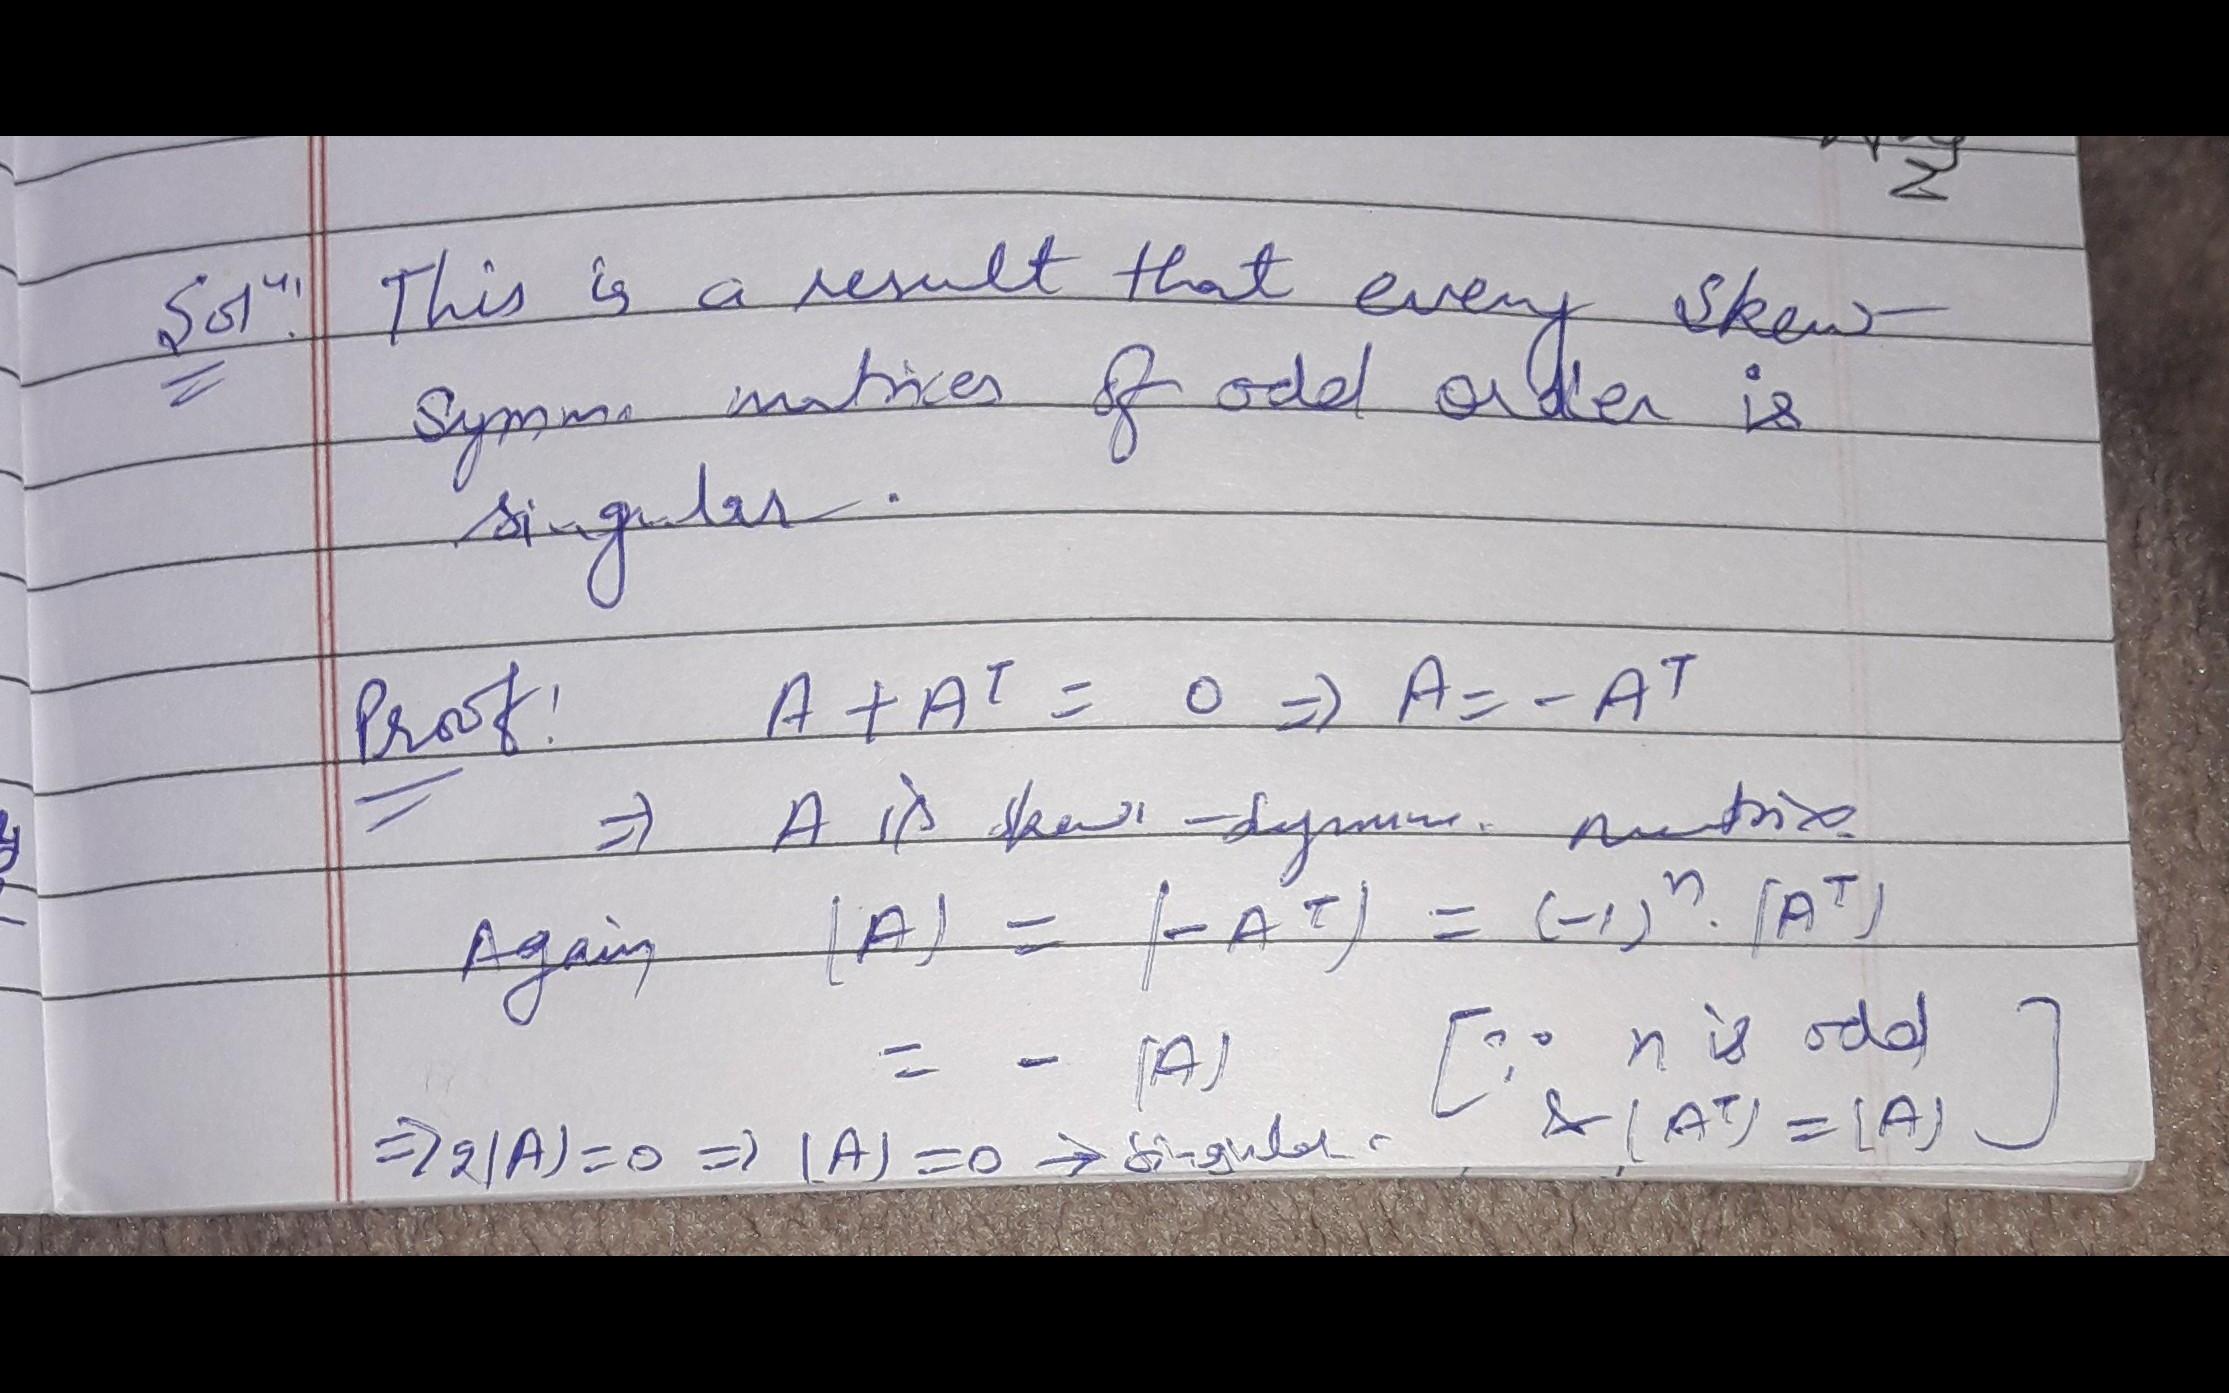 Solⁿ: This is a result that every skew-
symm. matrices of odd order is
singular.
Proof: A + Aᵀ = 0 ⇒ A = -Aᵀ
⇒ A is skew-symm. matrix.
Again |A| = |-Aᵀ| = (-1)ⁿ. |Aᵀ|
= - |A| [∵ n is odd
& |Aᵀ| = |A|]
⇒ 2|A| = 0 ⇒ |A| = 0 → singular.